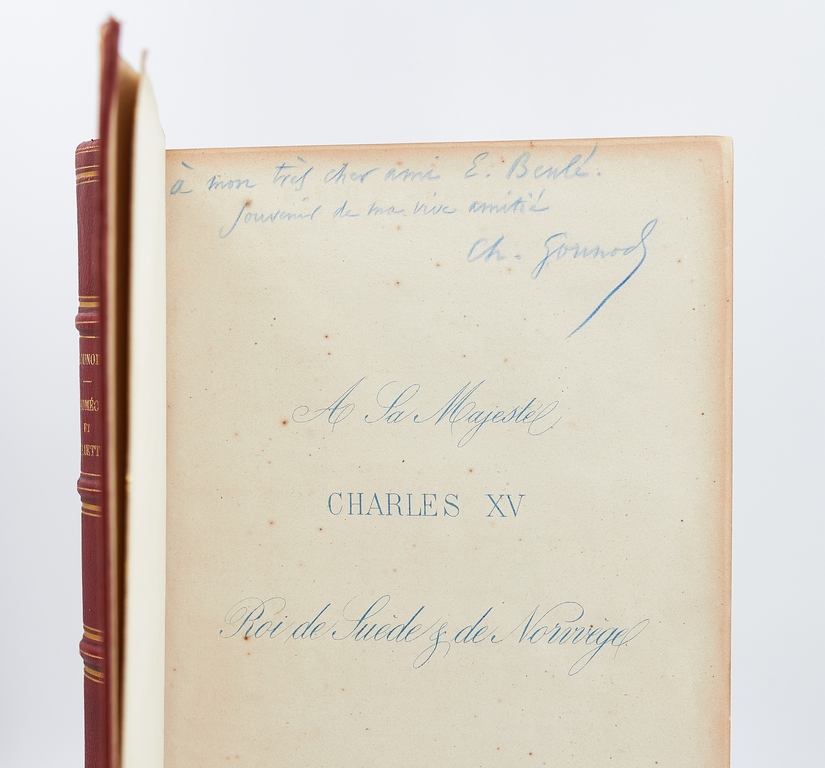 à mon très cher ami E. Beulé.
Souvenir de ma vive amitié
Ch. Gounod
A Sa Majesté
CHARLES XV
Roi de Suède & de Norvège
OUNOD
OMÉO
ET
IETT